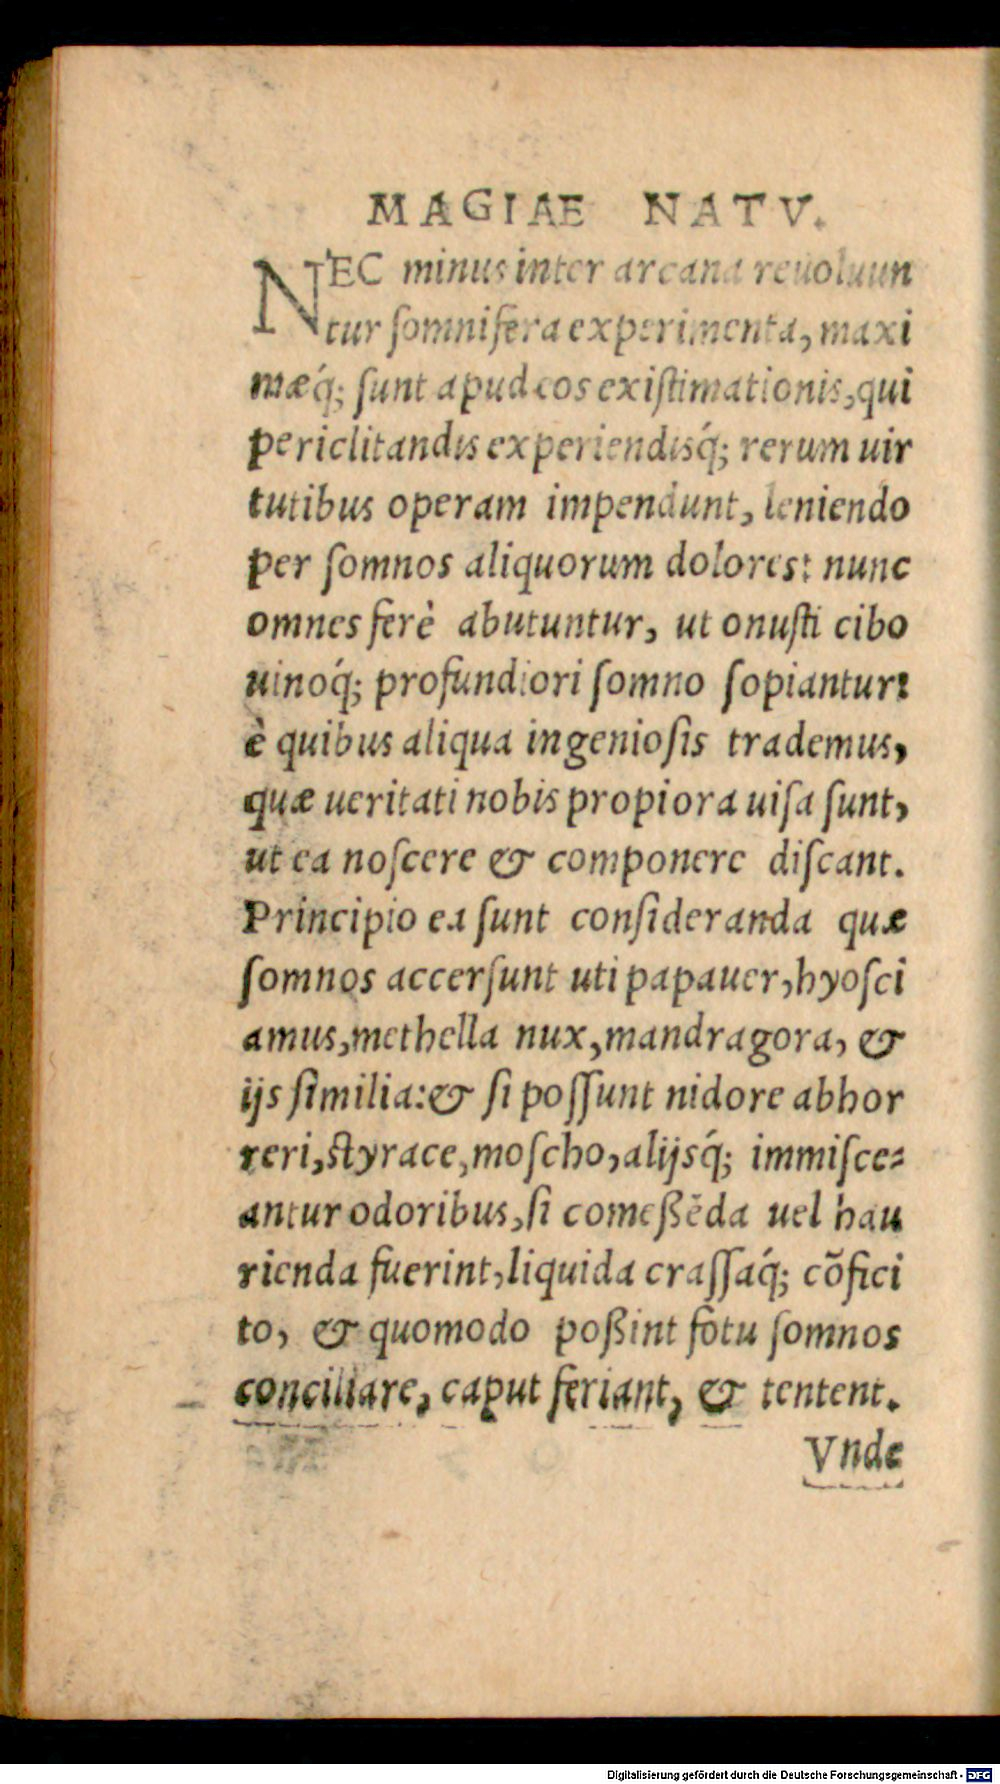 MAGIAE NATV.
NEC minus inter arcana reuoluun
tur ſomnifera experimenta, maxi
mæq́; ſunt apud eos exiſtimationis, qui
periclitandis experiendisq́; rerum uir
tutibus operam impendunt, leniendo
per ſomnos aliquorum dolores: nunc
omnes ferè abutuntur, ut onuſti cibo
uinoq́; profundiori ſomno ſopiantur:
è quibus aliqua ingenioſis trademus,
quæ ueritati nobis propiora uiſa ſunt,
ut ea noſcere & componere diſcant.
Principio ea ſunt conſideranda quæ
ſomnos accerſunt uti papauer, hyoſci
amus, methella nux, mandragora, &
ijs ſimilia: & ſi poſſunt nidore abhor
reri, ſtyrace, moſcho, alijsq́; immiſce-
antur odoribus, ſi comeßẽda uel hau
rienda fuerint, liquida craſſaq́; cõfici
to, & quomodo poßint fotu ſomnos
conciliare, caput feriant, & tentent.
Vnde
Digitalisierung gefördert durch die Deutsche Forschungsgemeinschaft - DFG